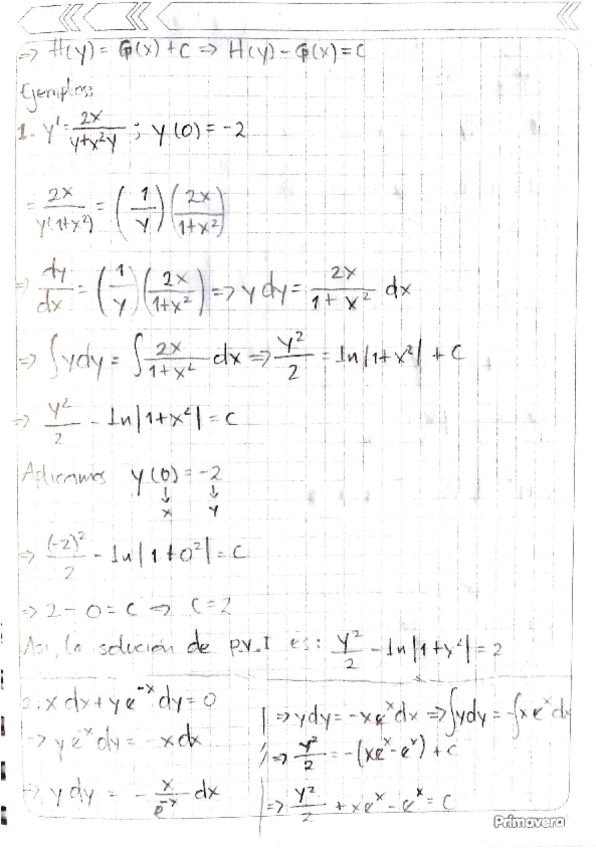 => H(y) = G(x) + C => H(y) - G(x) = C
Ejemplos:
1. y' = 2x/(y+x²y) ; y(0) = -2
= 2x/(y(1+x²)) = (1/y)(2x/(1+x²))
=> dy/dx = (1/y)(2x/(1+x²)) => y dy = 2x/(1+x²) dx
=> ∫ydy = ∫ 2x/(1+x²) dx => y²/2 = ln|1+x²| + C
=> y²/2 - ln|1+x²| = C
Aplicamos y(0) = -2
↓ ↓
x y
=> (-2)²/2 - ln|1+0²| = C
=> 2 - 0 = C => C = 2
Así, la solución de p.v.I es: y²/2 - ln|1+x²| = 2
2. x dx + y e^-x dy = 0
=> y e^-x dy = -x dx
=> y dy = - x/e^-x dx
=> ydy = -xe^x dx => ∫ydy = -∫xe^x dx
=> y²/2 = -(xe^x - e^x) + C
=> y²/2 + xe^x - e^x = C
Primavera